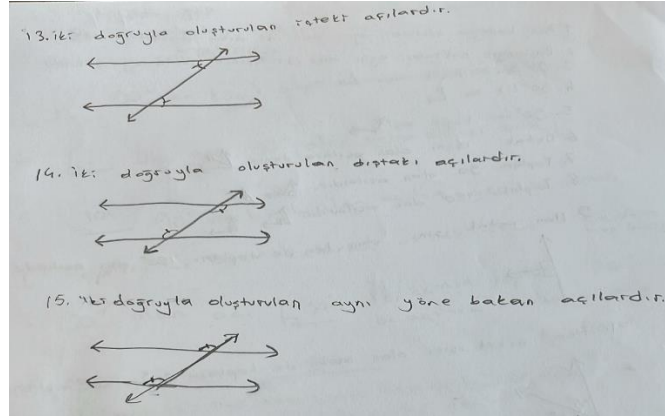 13. iki doğruyla oluşturulan içteki açılardır.
14. iki doğruyla oluşturulan dıştaki açılardır.
15. iki doğruyla oluşturulan aynı yöne bakan açılardır.